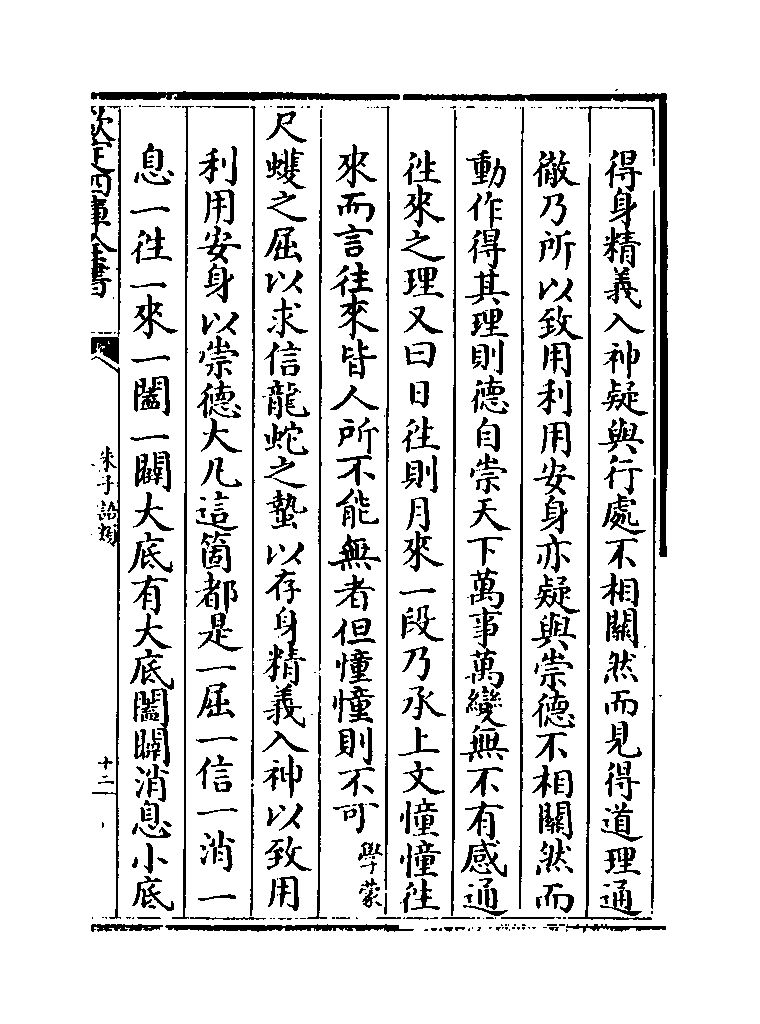 得身精義入神疑與行處不相關然而見得道理通
徹乃所以致用利用安身亦疑與崇德不相關然而
動作得其理則德自崇天下萬事萬變無不有感通
徃來之理又曰日徃則月來一段乃承上文憧憧徃
來而言往來皆人所不能無者但憧憧則不可學蒙
尺蠖之屈以求信龍蛇之蟄以存身精義入神以致用
利用安身以崇德大凡這箇都是一屈一信一消一
息一徃一來一闔一闢大底有大底闔闢消息小底
欽定四庫全書
朱子語類
十二